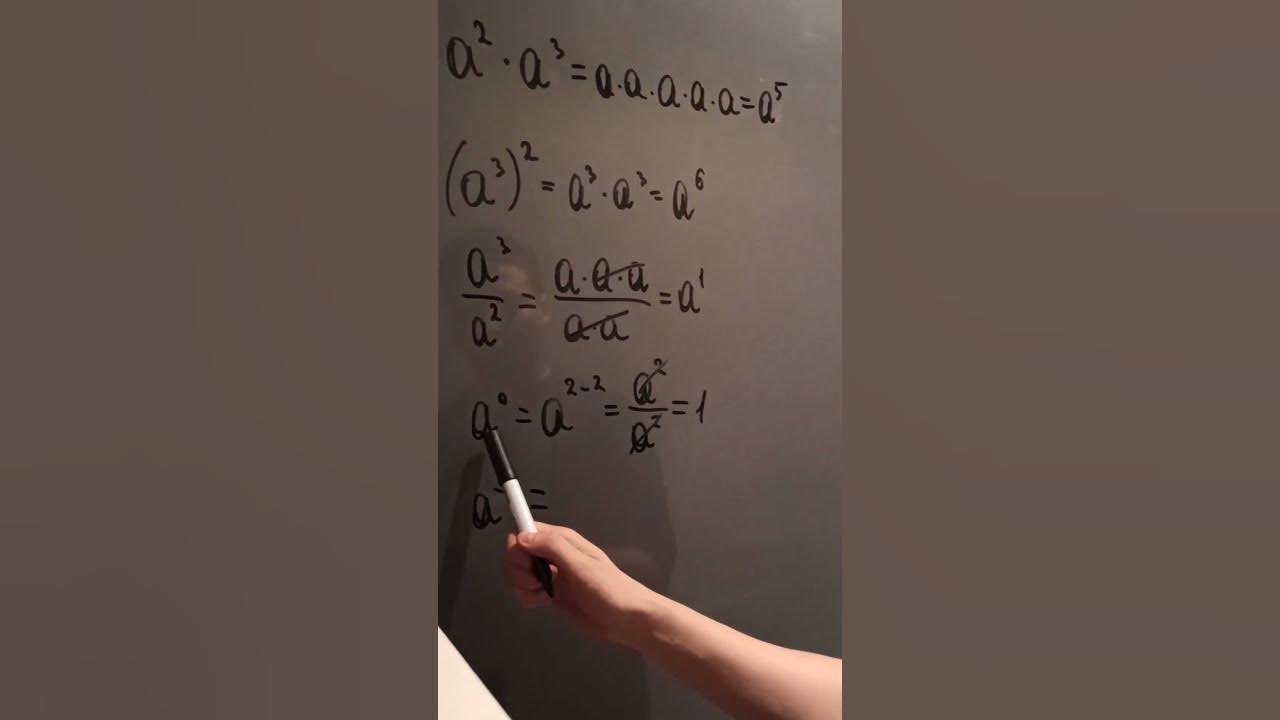 a² · a³ = a·a·a·a·a = a⁵
(a³)² = a³ · a³ = a⁶
a³/a² = a·a·a/a·a = a¹
a⁰ = a²⁻² = a²/a² = 1
a⁻ =